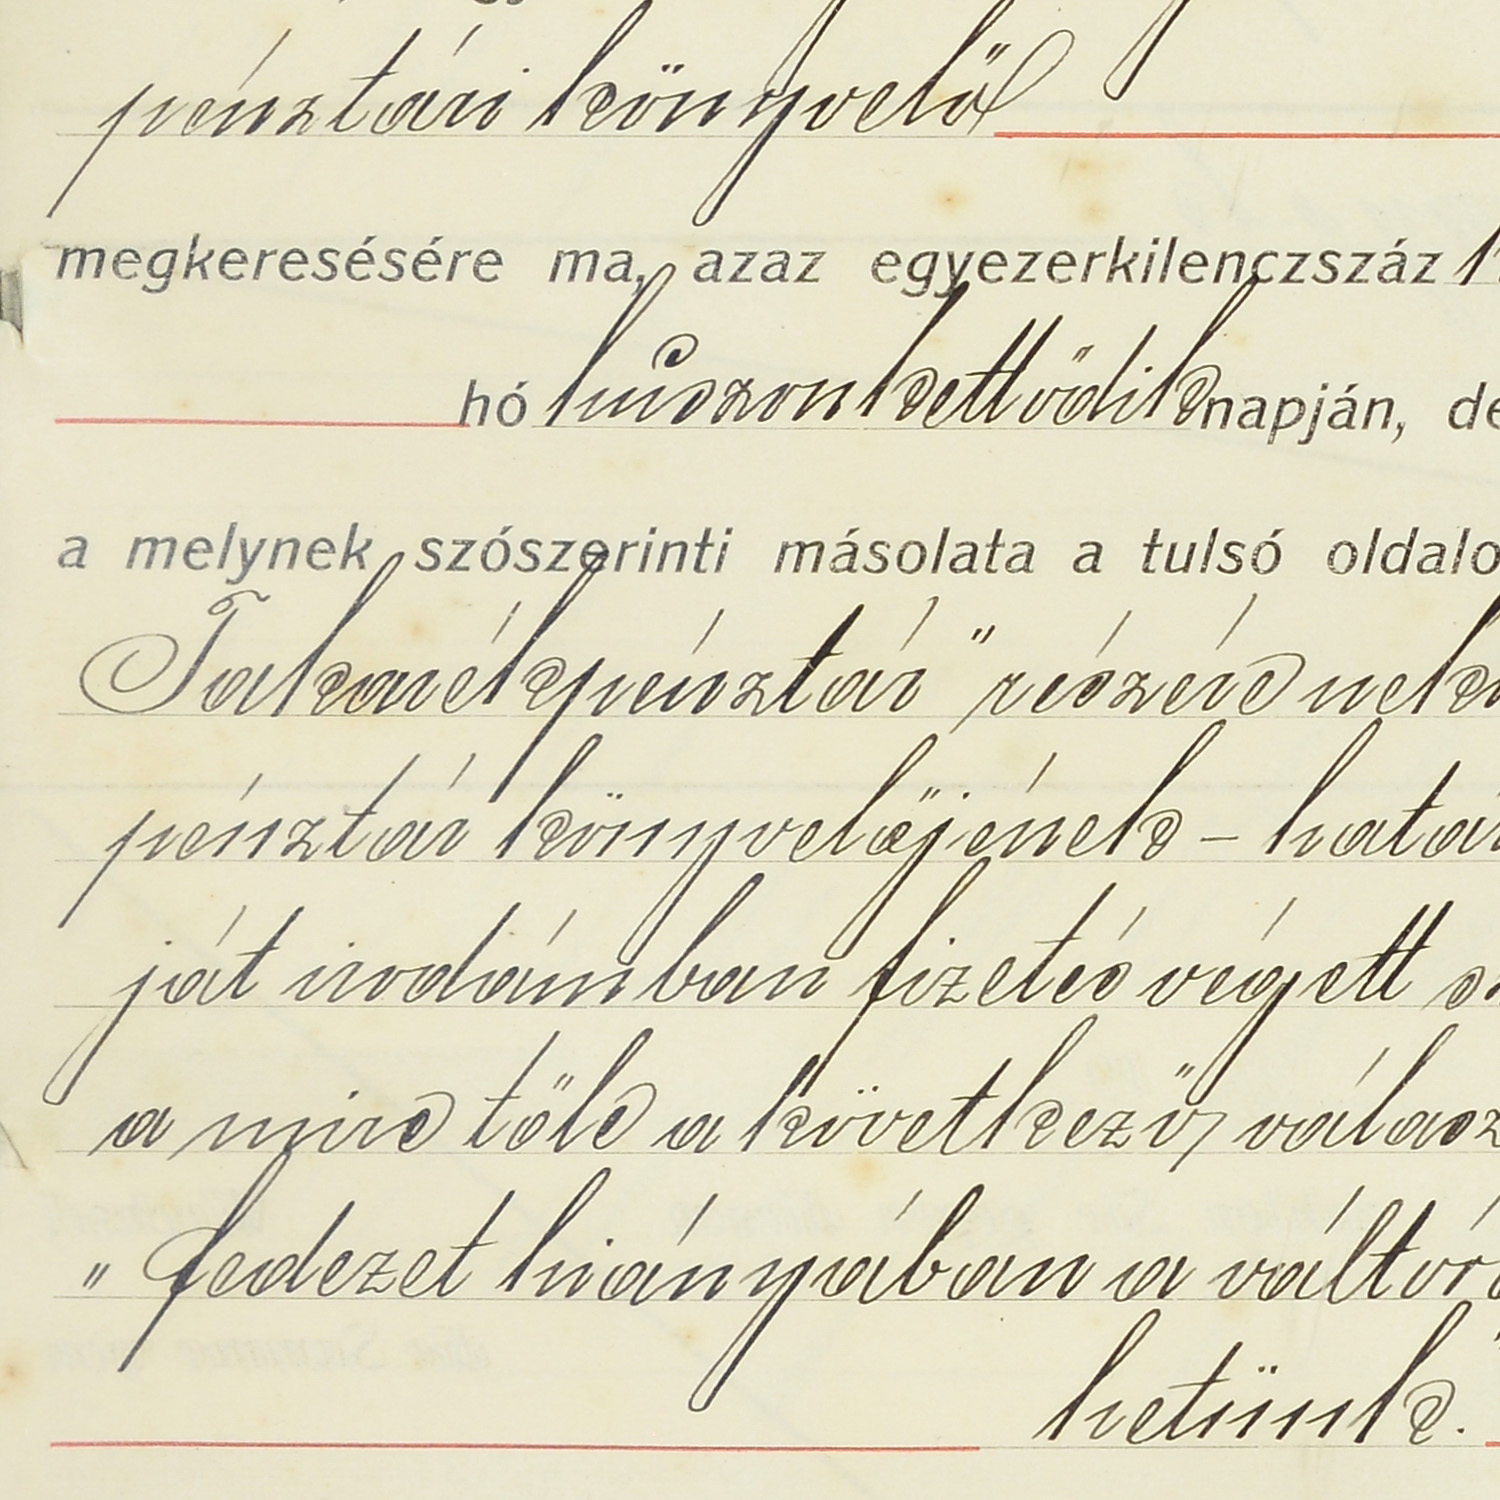 pénztári könyvelő
megkeresésére ma, azaz egyezerkilenczszáz
hó huszonkettődik napján, de
a melynek szószerinti másolata a tulsó oldalo
Takarékpénztár" részére nek
pénztár könyvelőjének – hatá
ját irodámban fizetés végett
a mire tőle a következő válasz
" fedezet hiányában a váltó
hetünk.